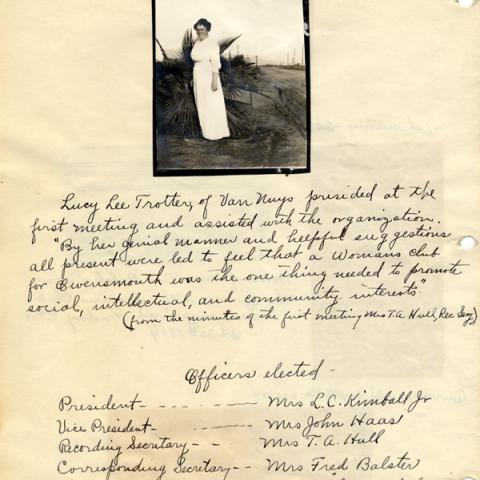 Lucy Lee Trotter, of Van Nuys presided at the
first meeting and assisted with the organization.
"By her genial manner and helpful suggestions
all present were led to feel that a Womans club
for Owensmouth was the one thing needed to promote
social, intellectual, and community interests".
(from the minutes of the first meeting Mrs T.A. Hull, Rec Secy)
Officers elected -
President - - - - - - - Mrs L.C. Kimball Jr
Vice President - - - - - Mrs John Haas
Recording Secretary - - Mrs T. A. Hull
Corresponding Secretary - - Mrs Fred Balster